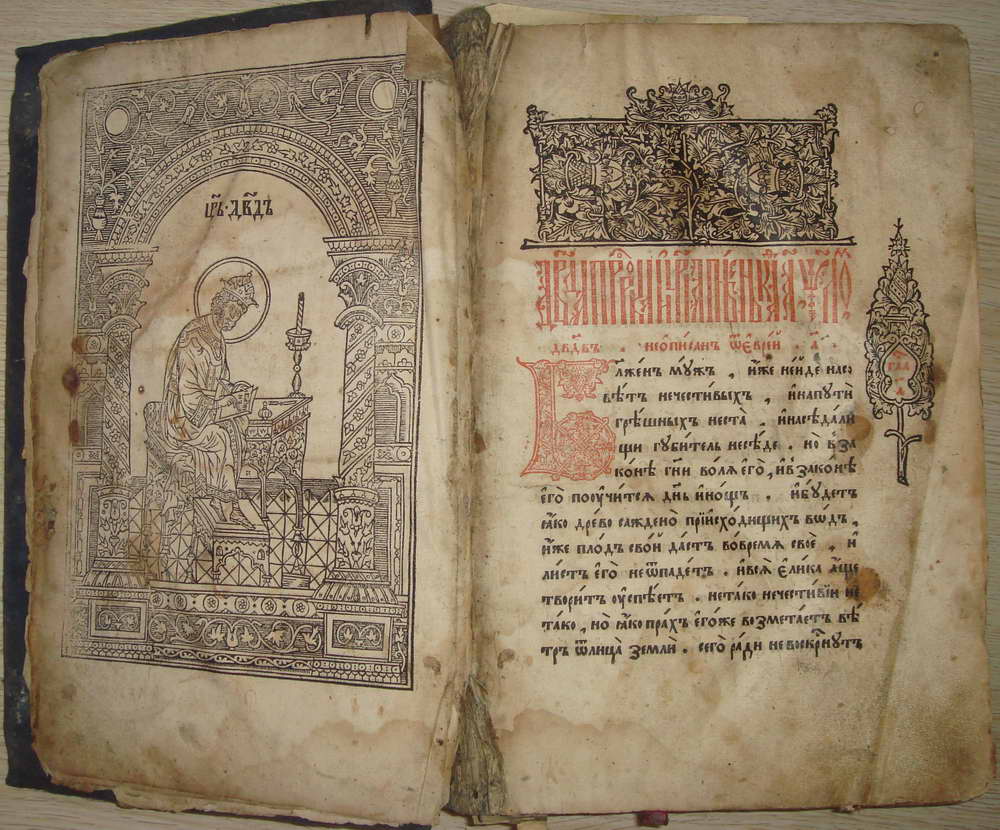 цр҃ь · дв҃дъ
дв҃двъ . неѡписанъ ѿ еврей . а҃
Блженъ мꙋжъ , и҆́же неи́де насо
вѣтъ нечестивыхъ , и҆напꙋтѝ
грѣ́шныхъ неста̀ . и҆насѣда́ли
щи гꙋбитель несѣ́де . но в̾за
ко́нѣ гн҃и во́лѧ є҆гѡ̀ , и҆ в̾зако́нѣ
є҆гѡ̀ поꙋчи́тсѧ дн҃ь и҆но́щь . и҆бꙋ́детъ
ꙗ҆́ко дре́во сажденѡ̀ при и҆схо́дищихъ во́дъ ,
и҆́же пло́дъ сво́й да́стъ во вре́мѧ своѐ , и҆
ли́стъ є҆гѡ̀ не ѿпаде́тъ . и҆всѧ̀ є҆ли́ка а҆́ще
твори́тъ оу҆спѣ́етъ . не та́ко нечести́вїи не
та́ко , но ꙗ҆́ко пра́хъ є҆го́же возмета́етъ вѣ́
тръ ѿ лица̀ землѝ . сего̀ ра́ди не воскр҃нꙋтъ